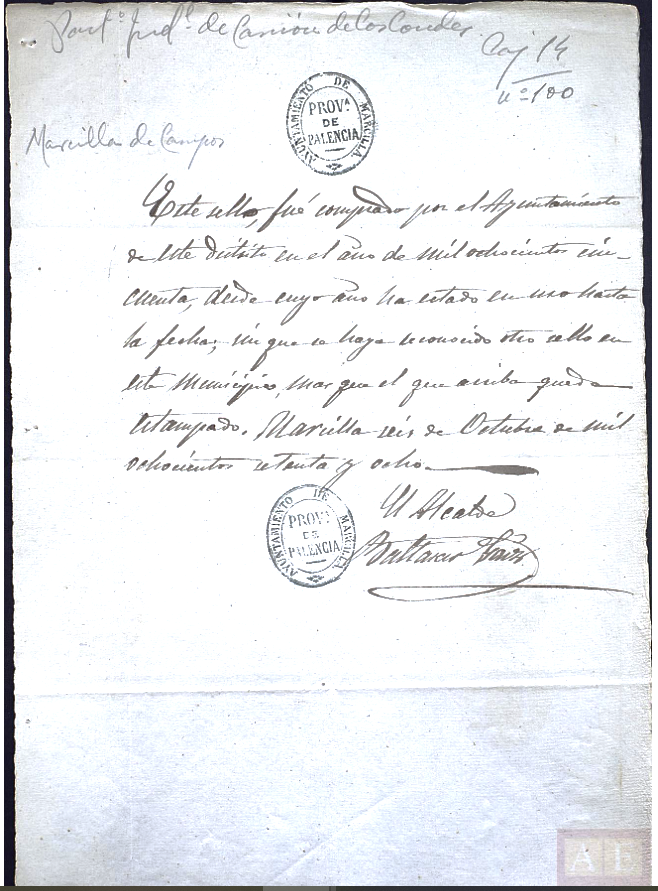 Part.º Jud.l de Carrión de los Condes.
Caj 14
nº 100
AYUNTAMIENTO DE MARCILLA.
PROVª
DE
PALENCIA
Marcilla de Campos
Este sello, fué comprado por el Ayuntamiento
de este distrito en el año de mil ochocientos cin-
cuenta, desde cuyo año ha estado en uso hasta
la fecha; sin que se haya reconocido otro sello en
este Municipio, mas que el que arriba queda
estampado. Marcilla seis de Octubre de mil
ochocientos setenta y ocho.
El Alcalde
Baltasar
AYUNTAMIENTO DE MARCILLA.
PROVª
DE
PALENCIA
A L